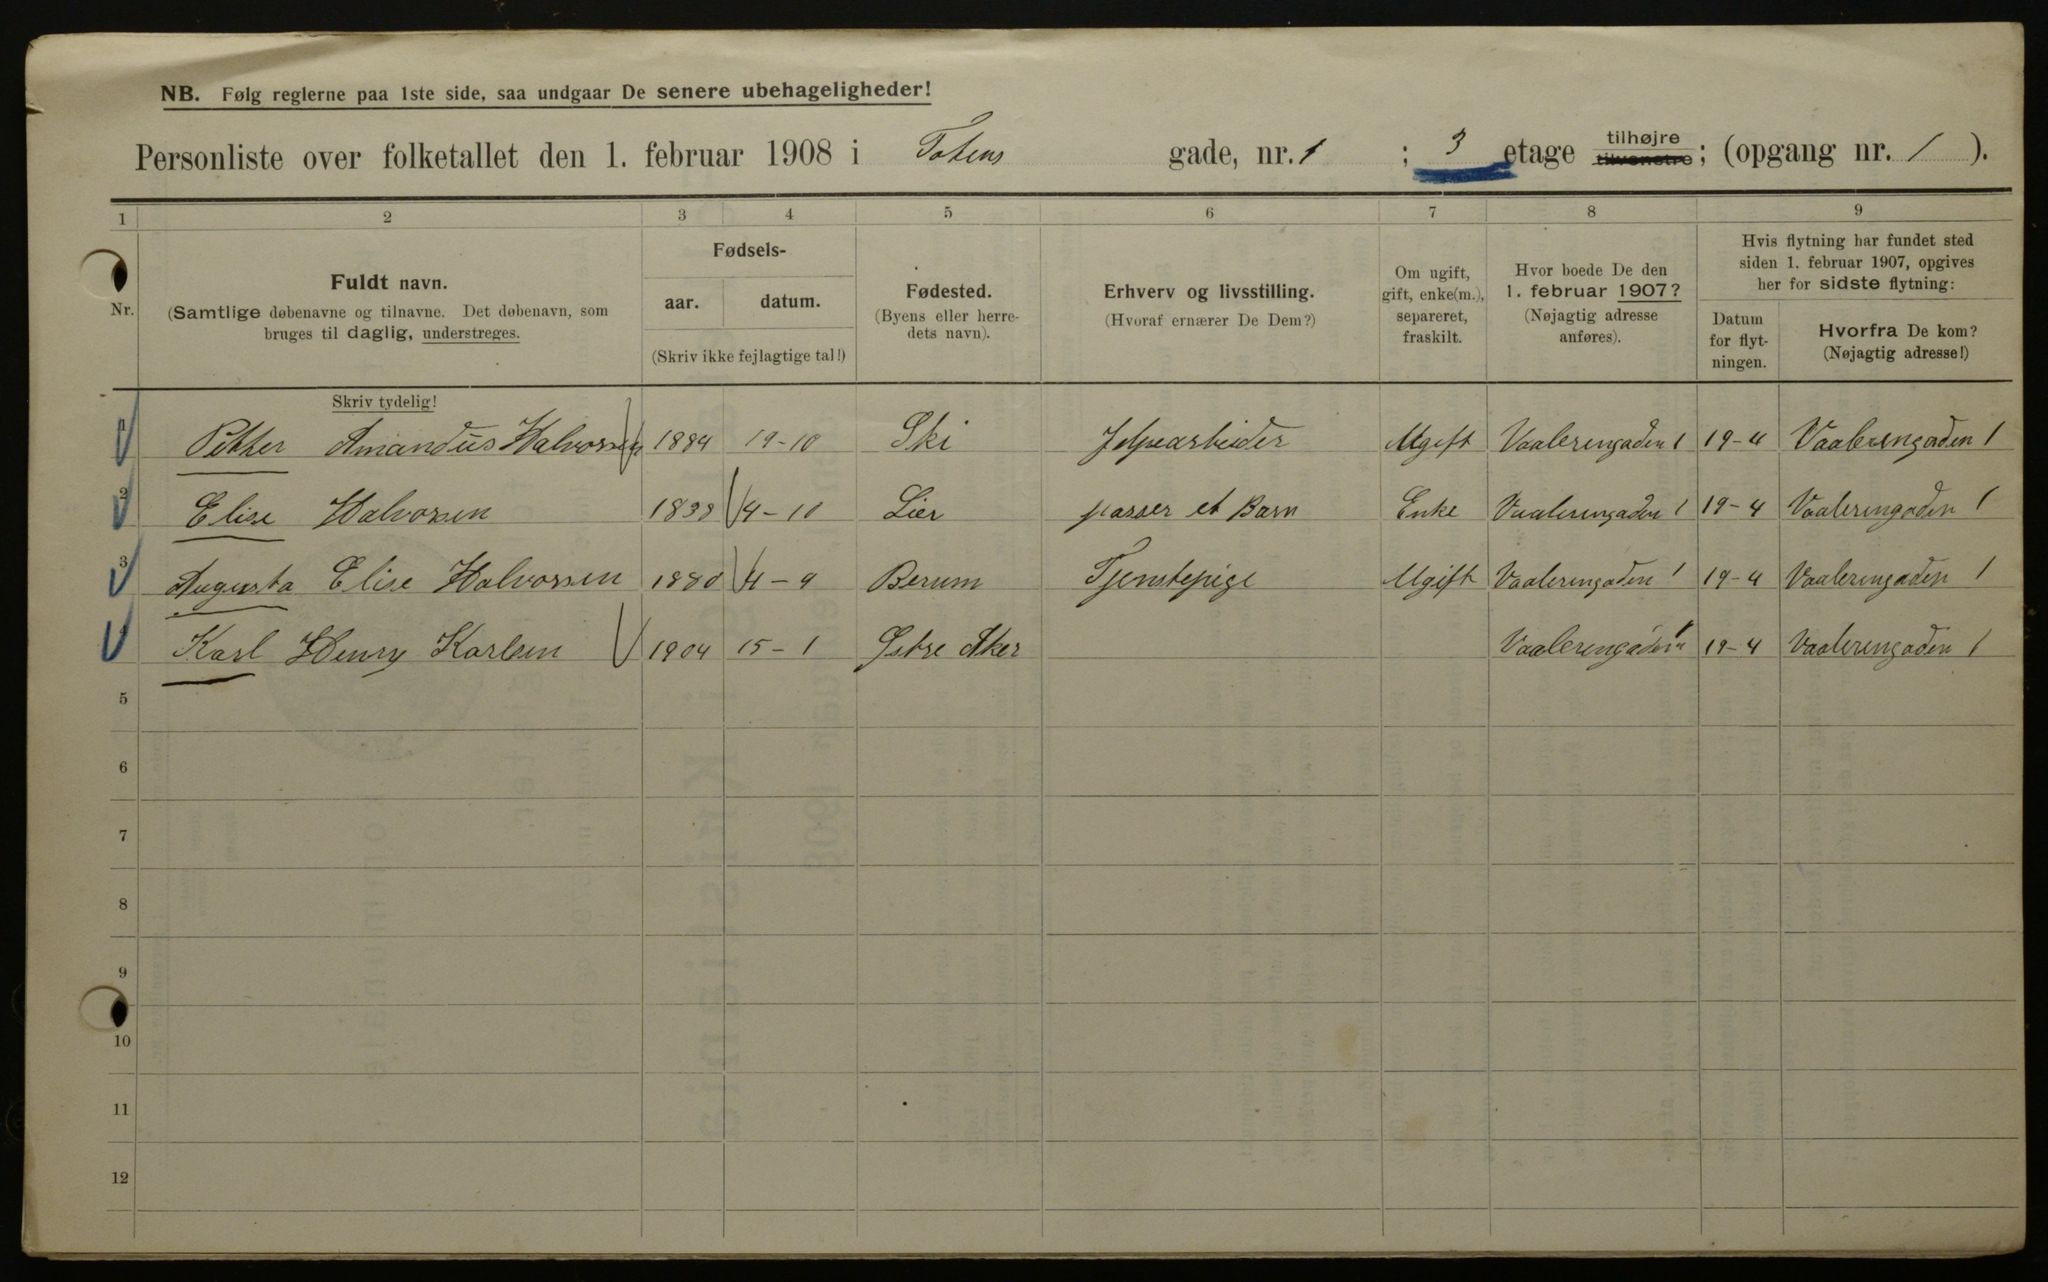 NB. Følg reglerne paa 1ste side, saa undgaar De senere ubehageligheder!
Personliste over folketallet den 1. februar 1908 i Totens gade, nr. 1 ; 3 etage tilhøjre tilvenstre; (opgang nr. 1 ).
1 2 3 4 5 6 7 8 9
Nr.
Fuldt navn.
(Samtlige døbenavne og tilnavne. Det døbenavn, som
bruges til daglig, understreges.
Fødsels-
aar. datum.
(Skriv ikke fejlagtige tal!)
Fødested.
(Byens eller herre-
dets navn).
Erhverv og livsstilling.
(Hvoraf ernærer De Dem?)
Om ugift,
gift, enke(m.),
separeret,
fraskilt.
Hvor boede De den
1. februar 1907?
(Nøjagtig adresse
anføres).
Hvis flytning har fundet sted
siden 1. februar 1907, opgives
her for sidste flytning:
Datum
for flyt-
ningen.
Hvorfra De kom?
(Nøjagtig adresse!)
Skriv tydelig!
1 Petter Amandus Halvorsen 1884 19-10 Ski Ugift Vaalerengaden 1 19-4 Vaalerengaden 1
2 Elise Halvorsen 4-10 Lier passer et Barn Enke Vaalerengaden 1 19-4 Vaalerengaden 1
3 Augusta Elise Halvorsen 1880 4-9 Berum Tjenstepige Ugift Vaalerengaden 1 19-4 Vaalerengaden 1
4 Karl Henry Karlsen 1904 15-1 Østre Aker Vaalerengaden 1 19-4 Vaalerengaden 1
5
6
7
8
9
10
11
12